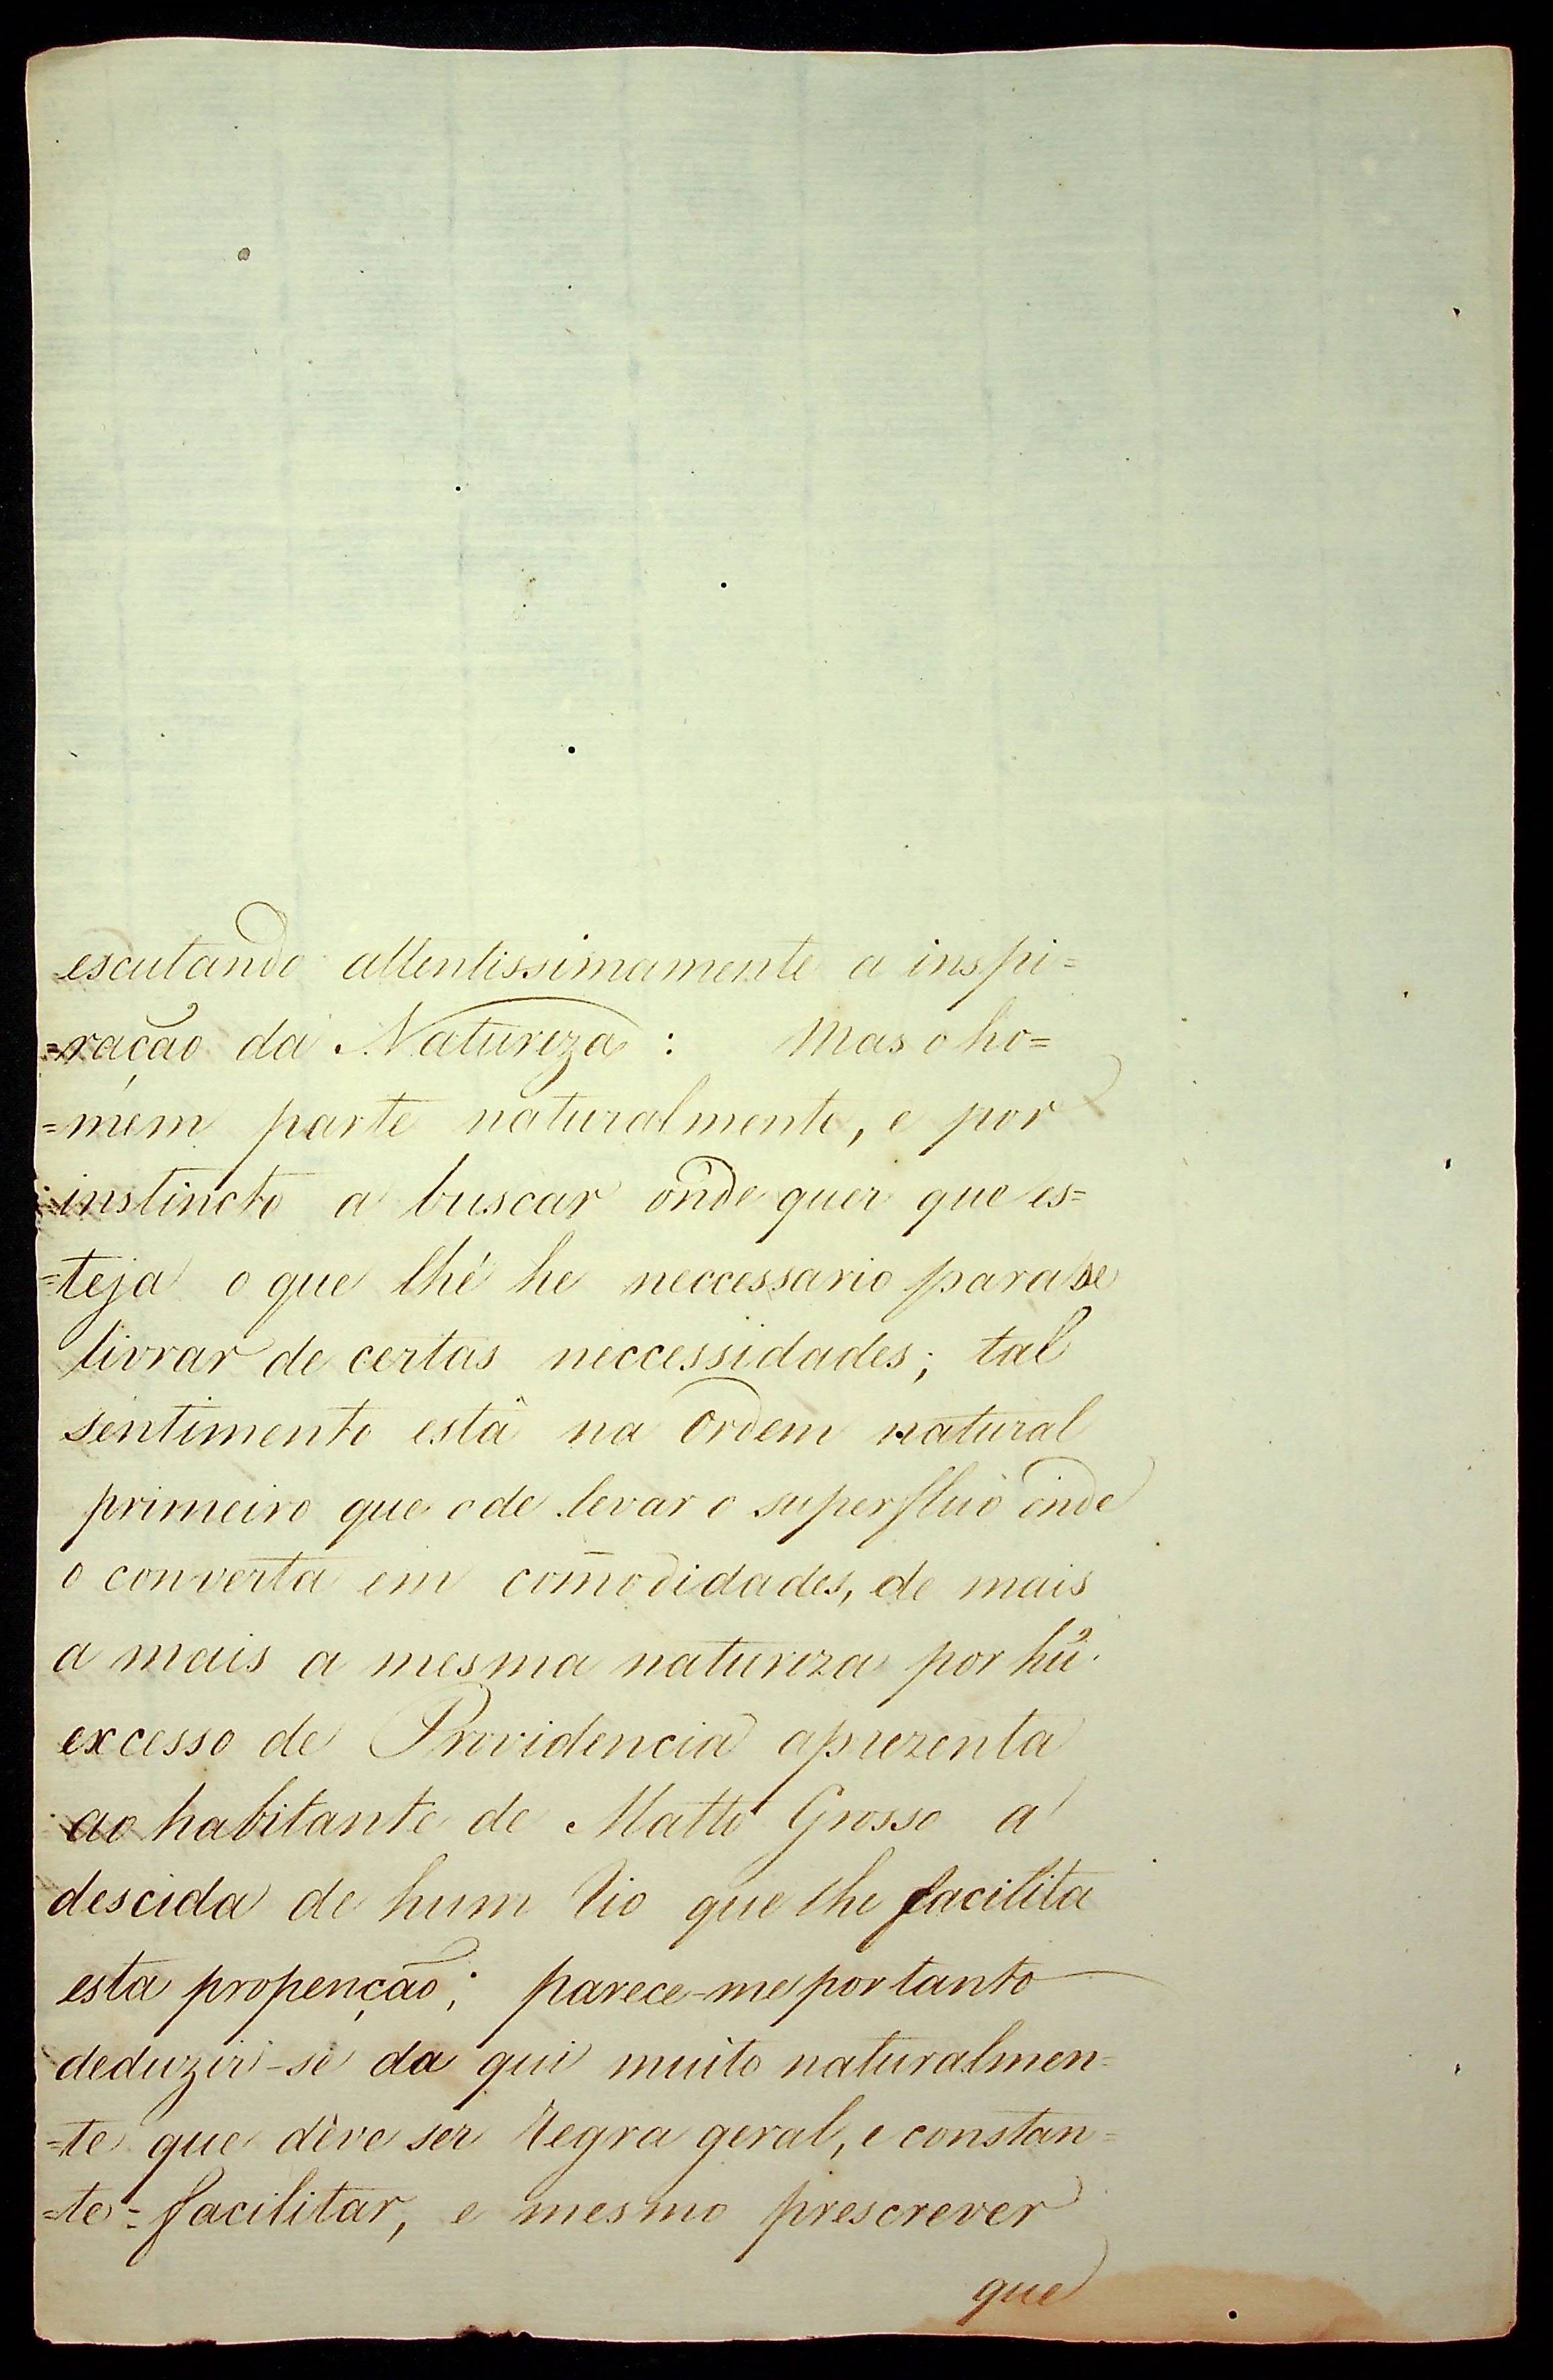 escutando attentissimamente a inspi=
=ração da Natureza : Mas o ho=
=mem parte naturalmente, e por
instincto a buscar onde quer que es=
=teja o que lhé he neccessario para se
livrar de certas neccessidades; tal
sentimento está na Ordem natural
primeiro que o de levar o superfluo onde
o converta em com̃odidades, de mais
a mais a mesma natureza por hũ
excesso de Providencia aprezenta
ao habitante de Matto Grosso a
descida de hum Rio que lhe facilita
esta propenção; parece-me por tanto
deduzir-se da qui muito naturalmen=
=te que déve ser Regra geral, e constan=
=te = facilitar, e mesmo prescrever
que